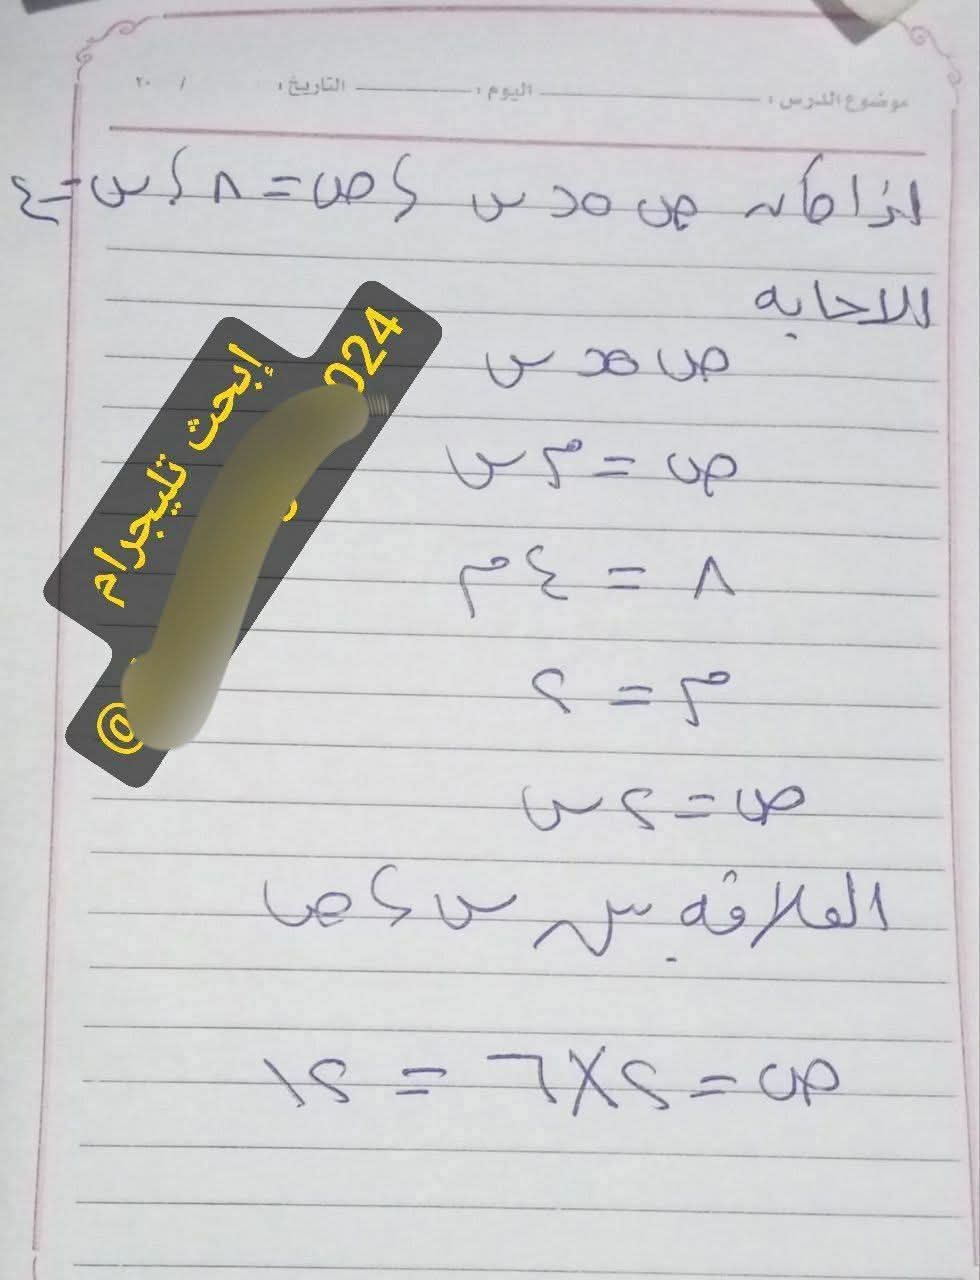 موضوع الدرس : اليوم : التاريخ : / ٢٠
إذا كان ص ∝ س ، ص = ٨ ، س = ٤
الاجابه
ص ∝ س
ص = م س
٨ = ٤ م
م = ٢
ص = ٢ س
العلاقه بين س ، ص
ص = ٢ × ٦ = ١٢
إبحث تليجرام
024
@